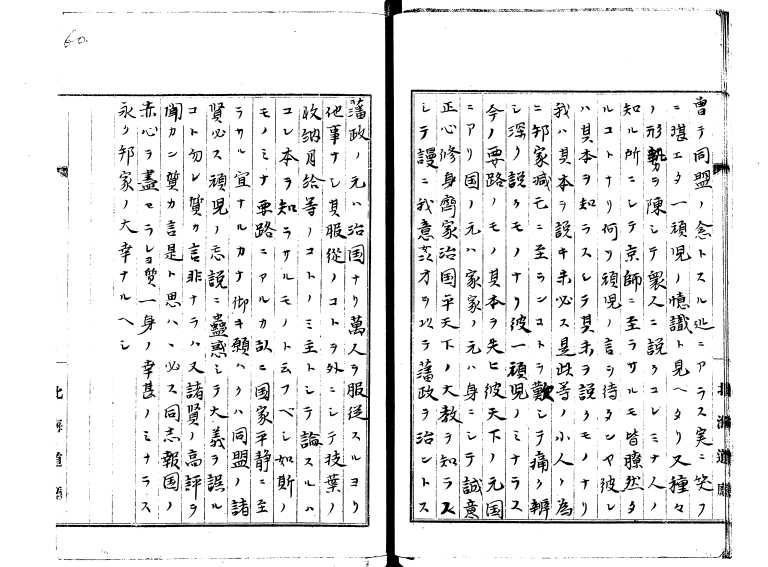 曽テ同盟ノ念トスル処ニアラス実ニ笑フ
ニ堪エタ一頑児ノ憶識ト見ヘタリ又種々
ノ形勢ヲ陳シテ衆人ニ説クコレミナ人ノ
知ル所ニシテ京師ニ至ラサルモ皆瞭然タ
ルコトナリ何ソ頑児ノ言ヲ待タンヤ彼レ
ハ其本ヲ知ラスシテ其末ヲ説クモノナリ
我ハ其本ヲ説キ未必ス是此等ノ小人ノ為
ニ邦家滅亡ニ至ランコトヲ歎シテ痛ク辨
シ深ク説クモノナリ彼一頑児ノミナラス
今ノ要路ノモノ其本ヲ失ヒ彼天下ノ元国
ニアリ国ノ元ハ家家ノ元ハ身ニシテ誠意
正心修身齊家治国平天下ノ大教ヲ知ラス
シテ謾ニ我意茨才ヲ以ラ藩政ヲ治ントス
藩政ノ元ハ治国ナリ萬人ヲ服従スルヨリ
他事ナシ其服從ノコトヲ外ニシテ枝葉ノ
收納月給等ノコトノミ主トシテ論スルハ
コレ本ヲ知ラサルモノト云フベシ如斯ノ
モノミナ要路ニアルカ故ニ国家平静ニ至
ラサル宜ナルカナ仰キ願ハクハ同盟ノ諸
賢必ス頑児ノ忘説ニ蠱惑シテ大義ヲ誤ル
コト勿レ質ノ言非ナラハ又諸賢ノ高評ヲ
聞カン質カ言是ト思ハハ必ス同志報国ノ
赤心ヲ盡セラレヨ質一身ノ幸甚ノミナラス
永ク邦家ノ大幸ナルヘシ
北海道廳
60